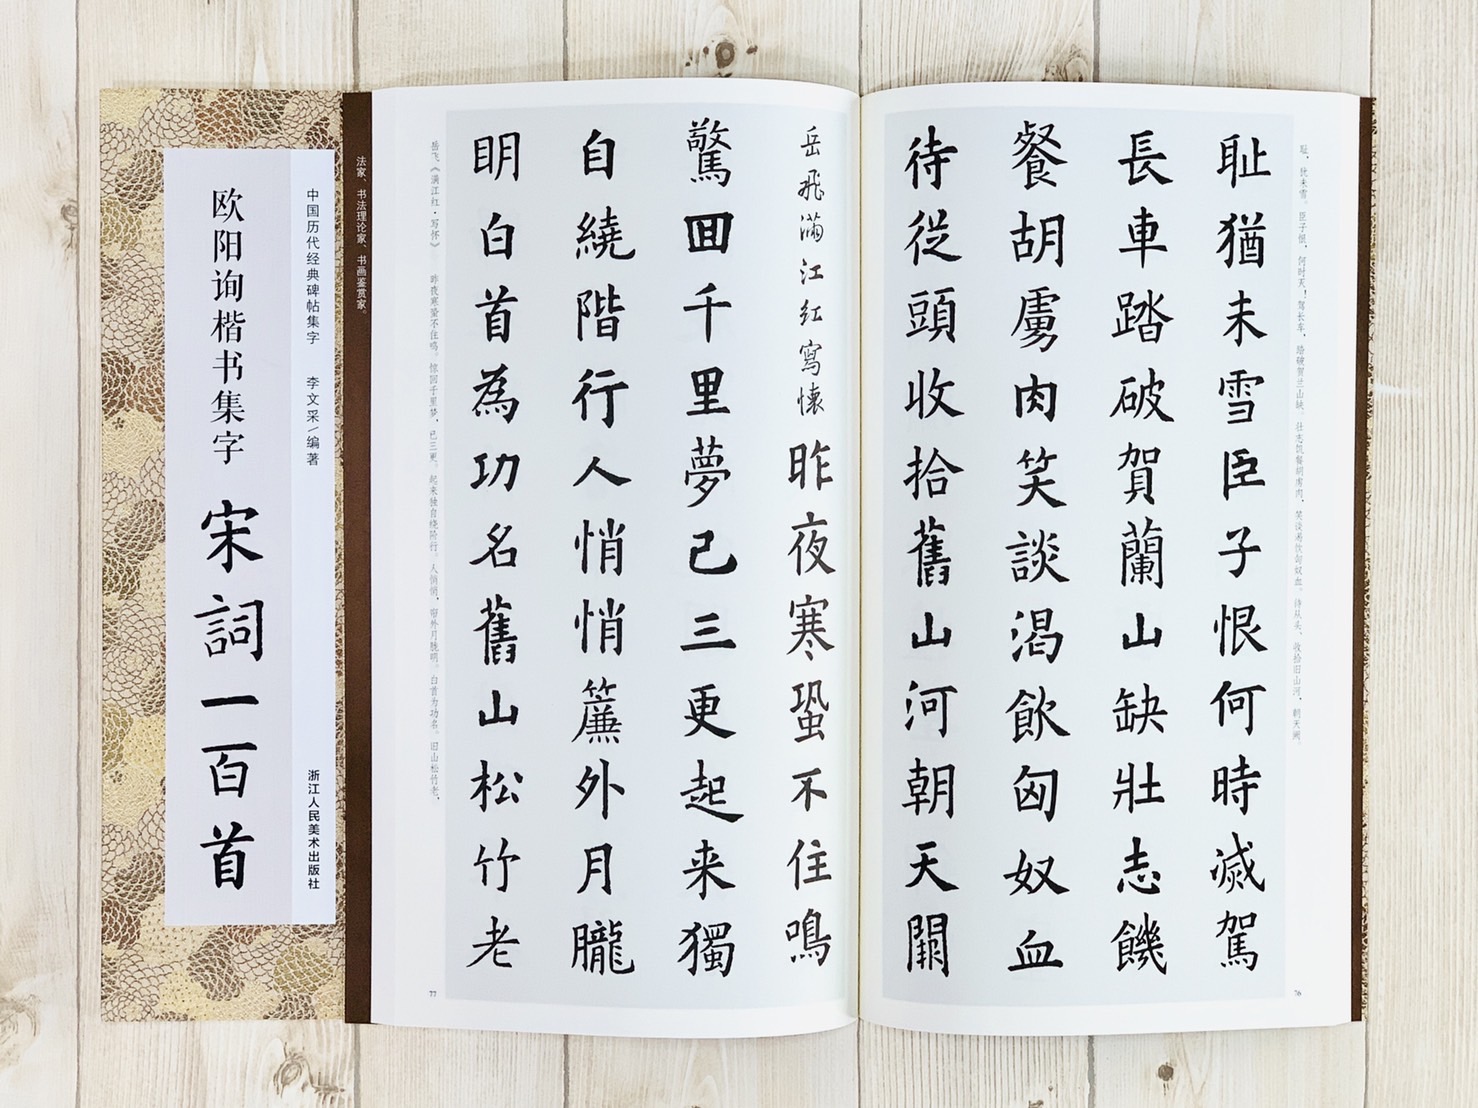 耻，犹未雪。臣子恨，何时灭！驾长车，踏破贺兰山缺。壮志饥餐胡虏肉，笑谈渴饮匈奴血。待从头、收拾旧山河，朝天阙。
耻猶未雪臣子恨何時滅駕
長車踏破賀蘭山缺壯志饑
餐胡虜肉笑談渴飲匈奴血
待從頭收拾舊山河朝天闕
76
岳飛滿江紅寫懷昨夜寒蛩不住鳴
驚回千里夢已三更起来獨
自繞階行人悄悄簾外月朧
明白首為功名舊山松竹老
岳飞《满江红·写怀》 昨夜寒蛩不住鸣。惊回千里梦，已三更。起来独自绕阶行。人悄悄，帘外月胧明。白首为功名。旧山松竹老，
77
法家、书法理论家、书画鉴赏家。
中国历代经典碑帖集字 李文采/编著 浙江人民美术出版社
欧阳询楷书集字 宋詞一百首